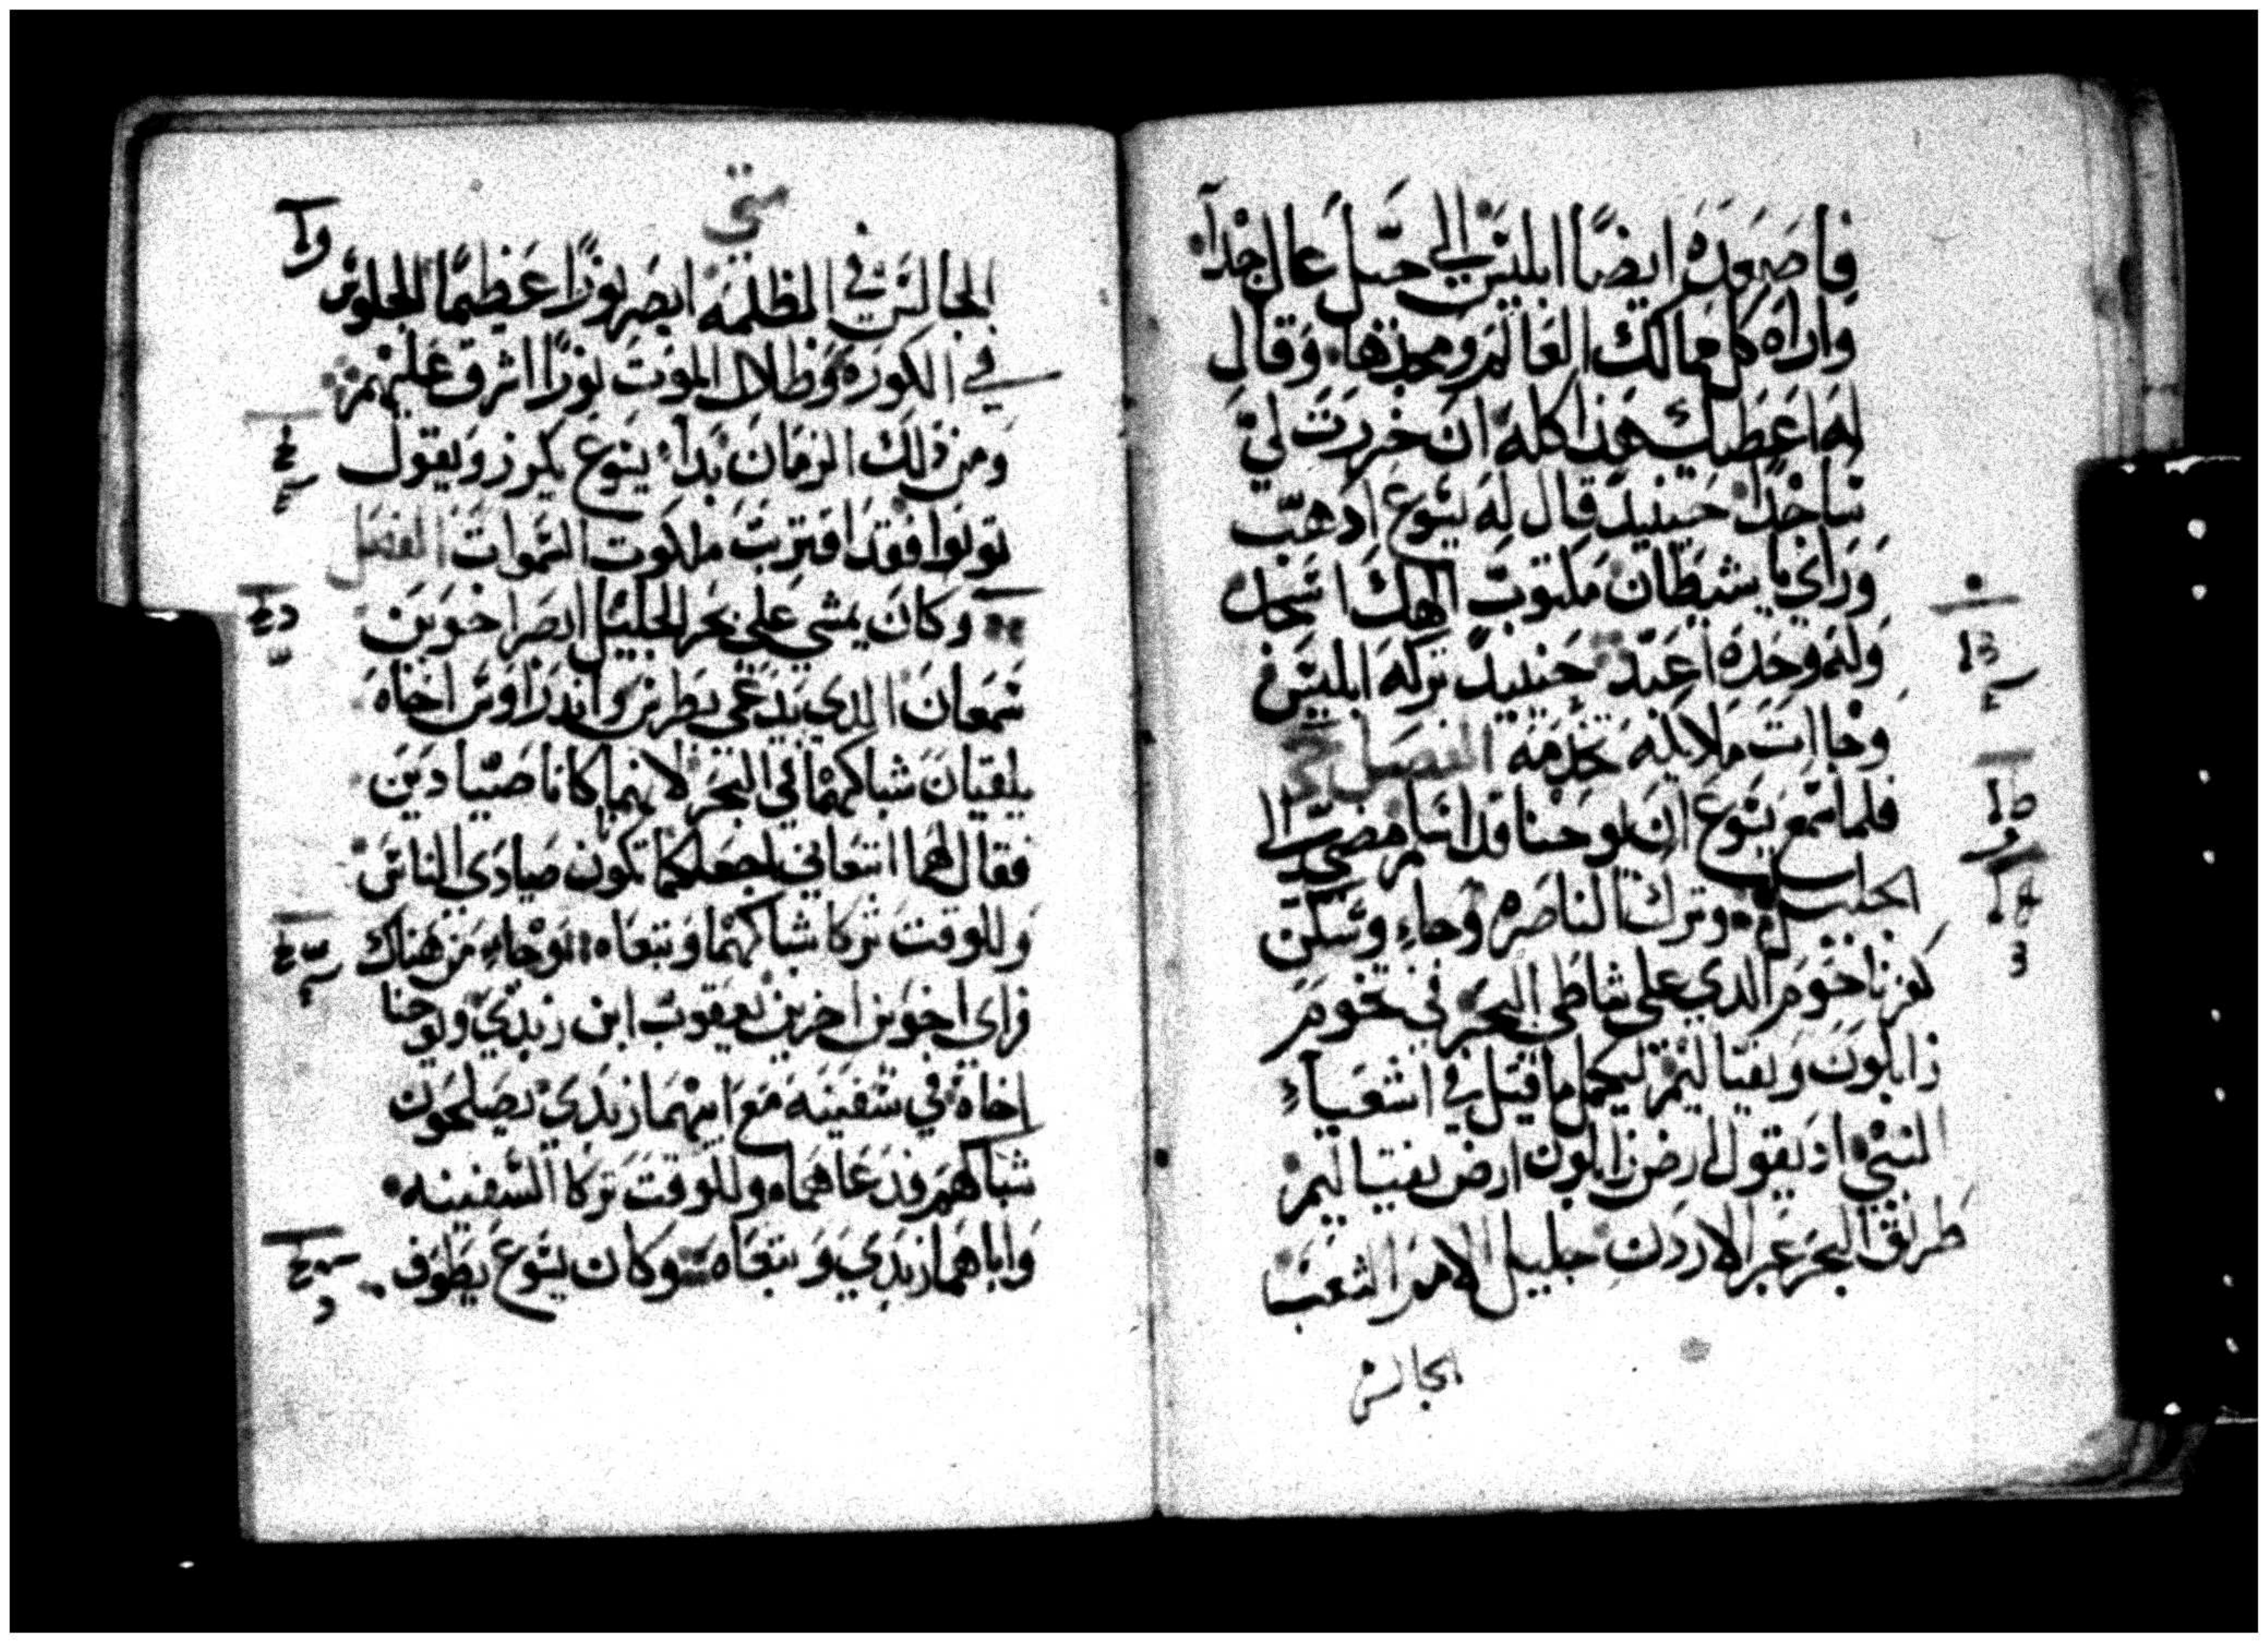 فاصعده ايضًا ابليس الى جبل عال جدًا
واراه كل ممالك العالم ومجدها وقال
له اعطيك هذا كله ان خررت لي
ساجدًا حينيد قال له يسوع ادهب
وراي يا شيطان مكتوب الهك اسجد
وله وحده اعبد حينيد تركه ابليس
وجاات ملايكه تخدمه الفصل
فلما سمع يسوع ان يوحنا قد اسلم مضى الى
الجليل وترك الناصره وجاء وسكن
كفرناحوم الدي على شاطى البحر في تخوم
زابلون ونفتاليم ليكمل ما قيل في اشعياء
النبي اد يقول ارض زابلون ارض نفتاليم
طريق البحر عبر الاردن جليل الامم الشعب
الجالس
متي
الجالس في الظلمه ابصر نورًا عظيمًا الجلوس
في الكوره وظلال الموت نورًا اشرق عليهم
ومن ذلك الزمان بداء يسوع يكرز ويقول
توبوا فقد اقتربت ملكوت السموات الفصل
وكان يمشي على بحر الجليل ابصر اخوين
سمعان الدي يدعى بطرس واندراوس اخاه
يلقيان شباكهما في البحر لانهما كانا صيادين
فقال لهما اتبعاني اجعلكما تكون صيادي الناس
وللوقت تركا شباكهما وتبعاه وجاء من هناك
فراى اخوين اخرين يعقوب ابن زبدي ويوحنا
اخاه في سفينه مع ابيهما زبدي يصلحون
شباكهم فدعاهما وللوقت تركا السفينه
واباهما زبدي وتبعاه وكان يسوع يطوف